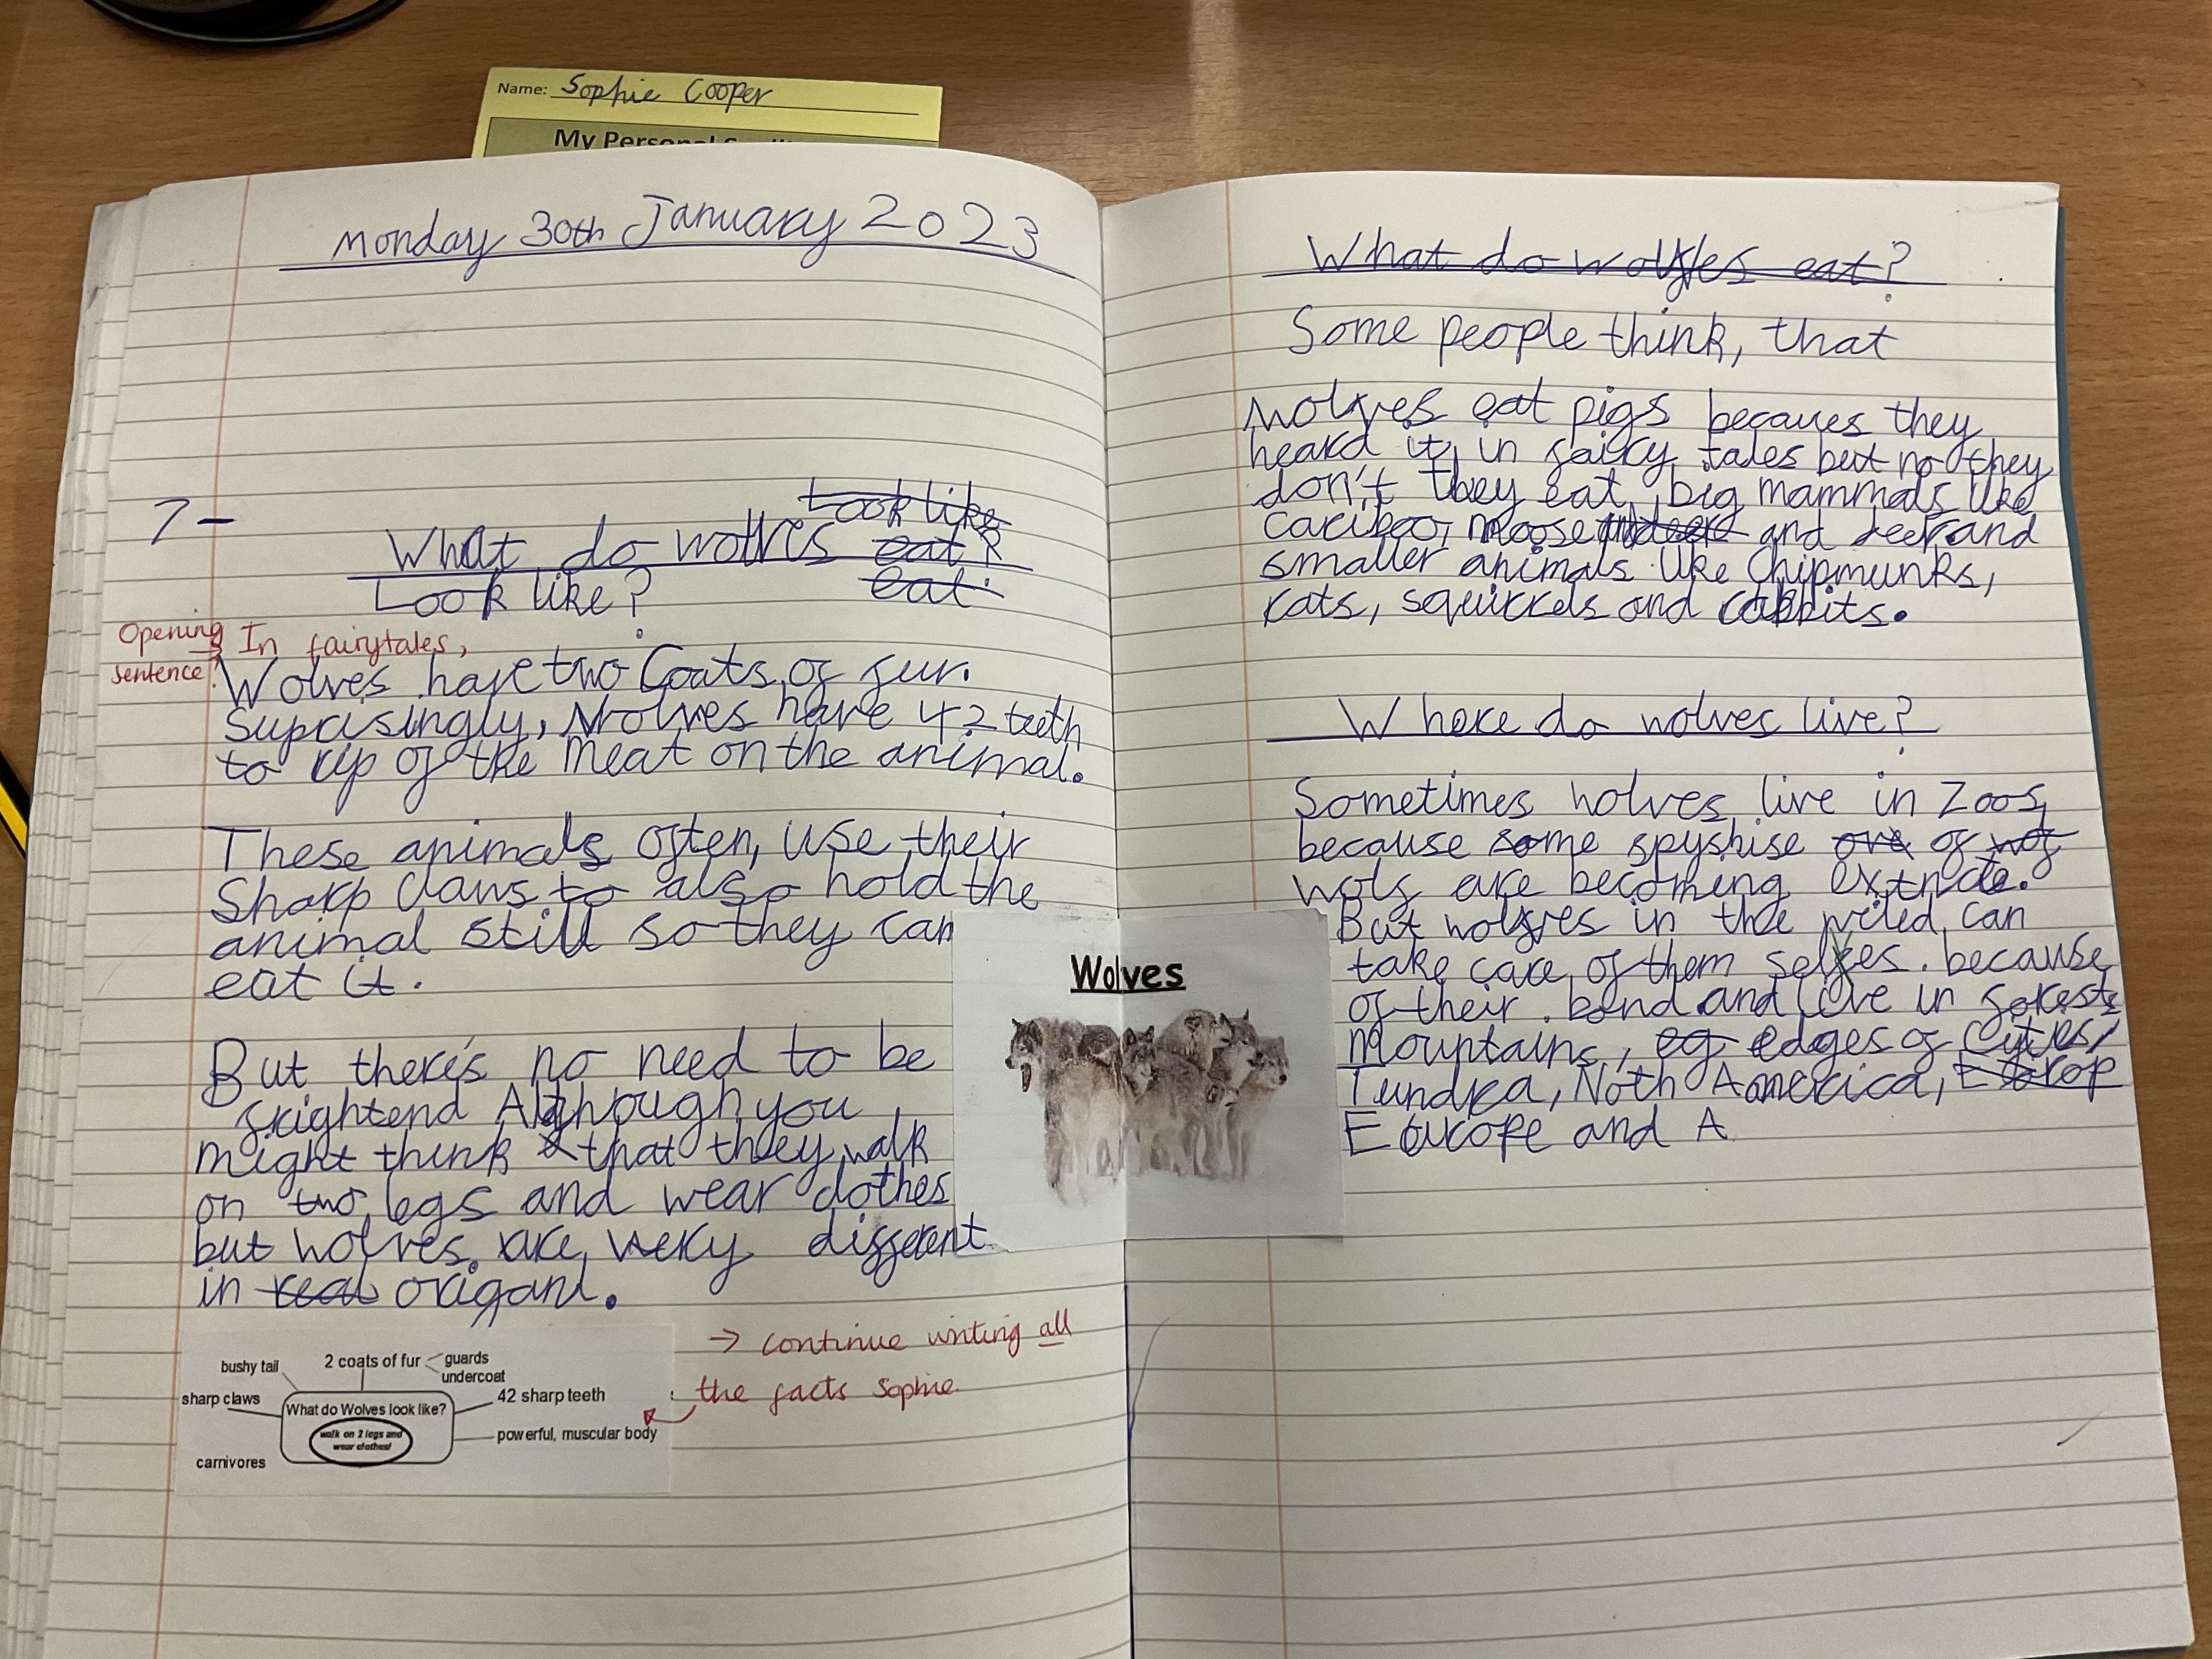 Name: Sophie Cooper
My Personal
Monday 30th January 2023
7-
Look like
What do wolves eat?
Look like? eat.
Opening In fairytales,
sentence!
Wolves have two Coats of fur.
Suprisingly, Wolves have 42 teeth
to rip of the meat on the animal.
These animals often, use their
Sharp claws to also hold the
animal still so they can
eat it.
But there's no need to be
frightend Although you
might think that they walk
on two legs and wear clothes
but wolves are very different
in real origanl.
bushy tail
2 coats of fur
guards
undercoat
sharp claws
What do Wolves look like?
42 sharp teeth
walk on 2 legs and
wear clothes!
powerful, muscular body
carnivores
→ continue writing all
the facts Sophie.
Wolves
What do wolves eat?
Some people think, that
wolves eat pigs becaues they
heard it in fairy tales but no they
don't they eat big mammals like
cariboo, moose and deer and
smaller animals like Chipmunks,
rats, squirrels and rabbits.
Where do wolves live?
Sometimes wolves live in Zoos,
because some spyshise of
wolf are becoming extncte.
But wolves in the wiled can
take care of them selves. because
of their bond and live in forests
mountains, eg edges of Cytes,
Tundra, Noth America, Europ
Europe and A